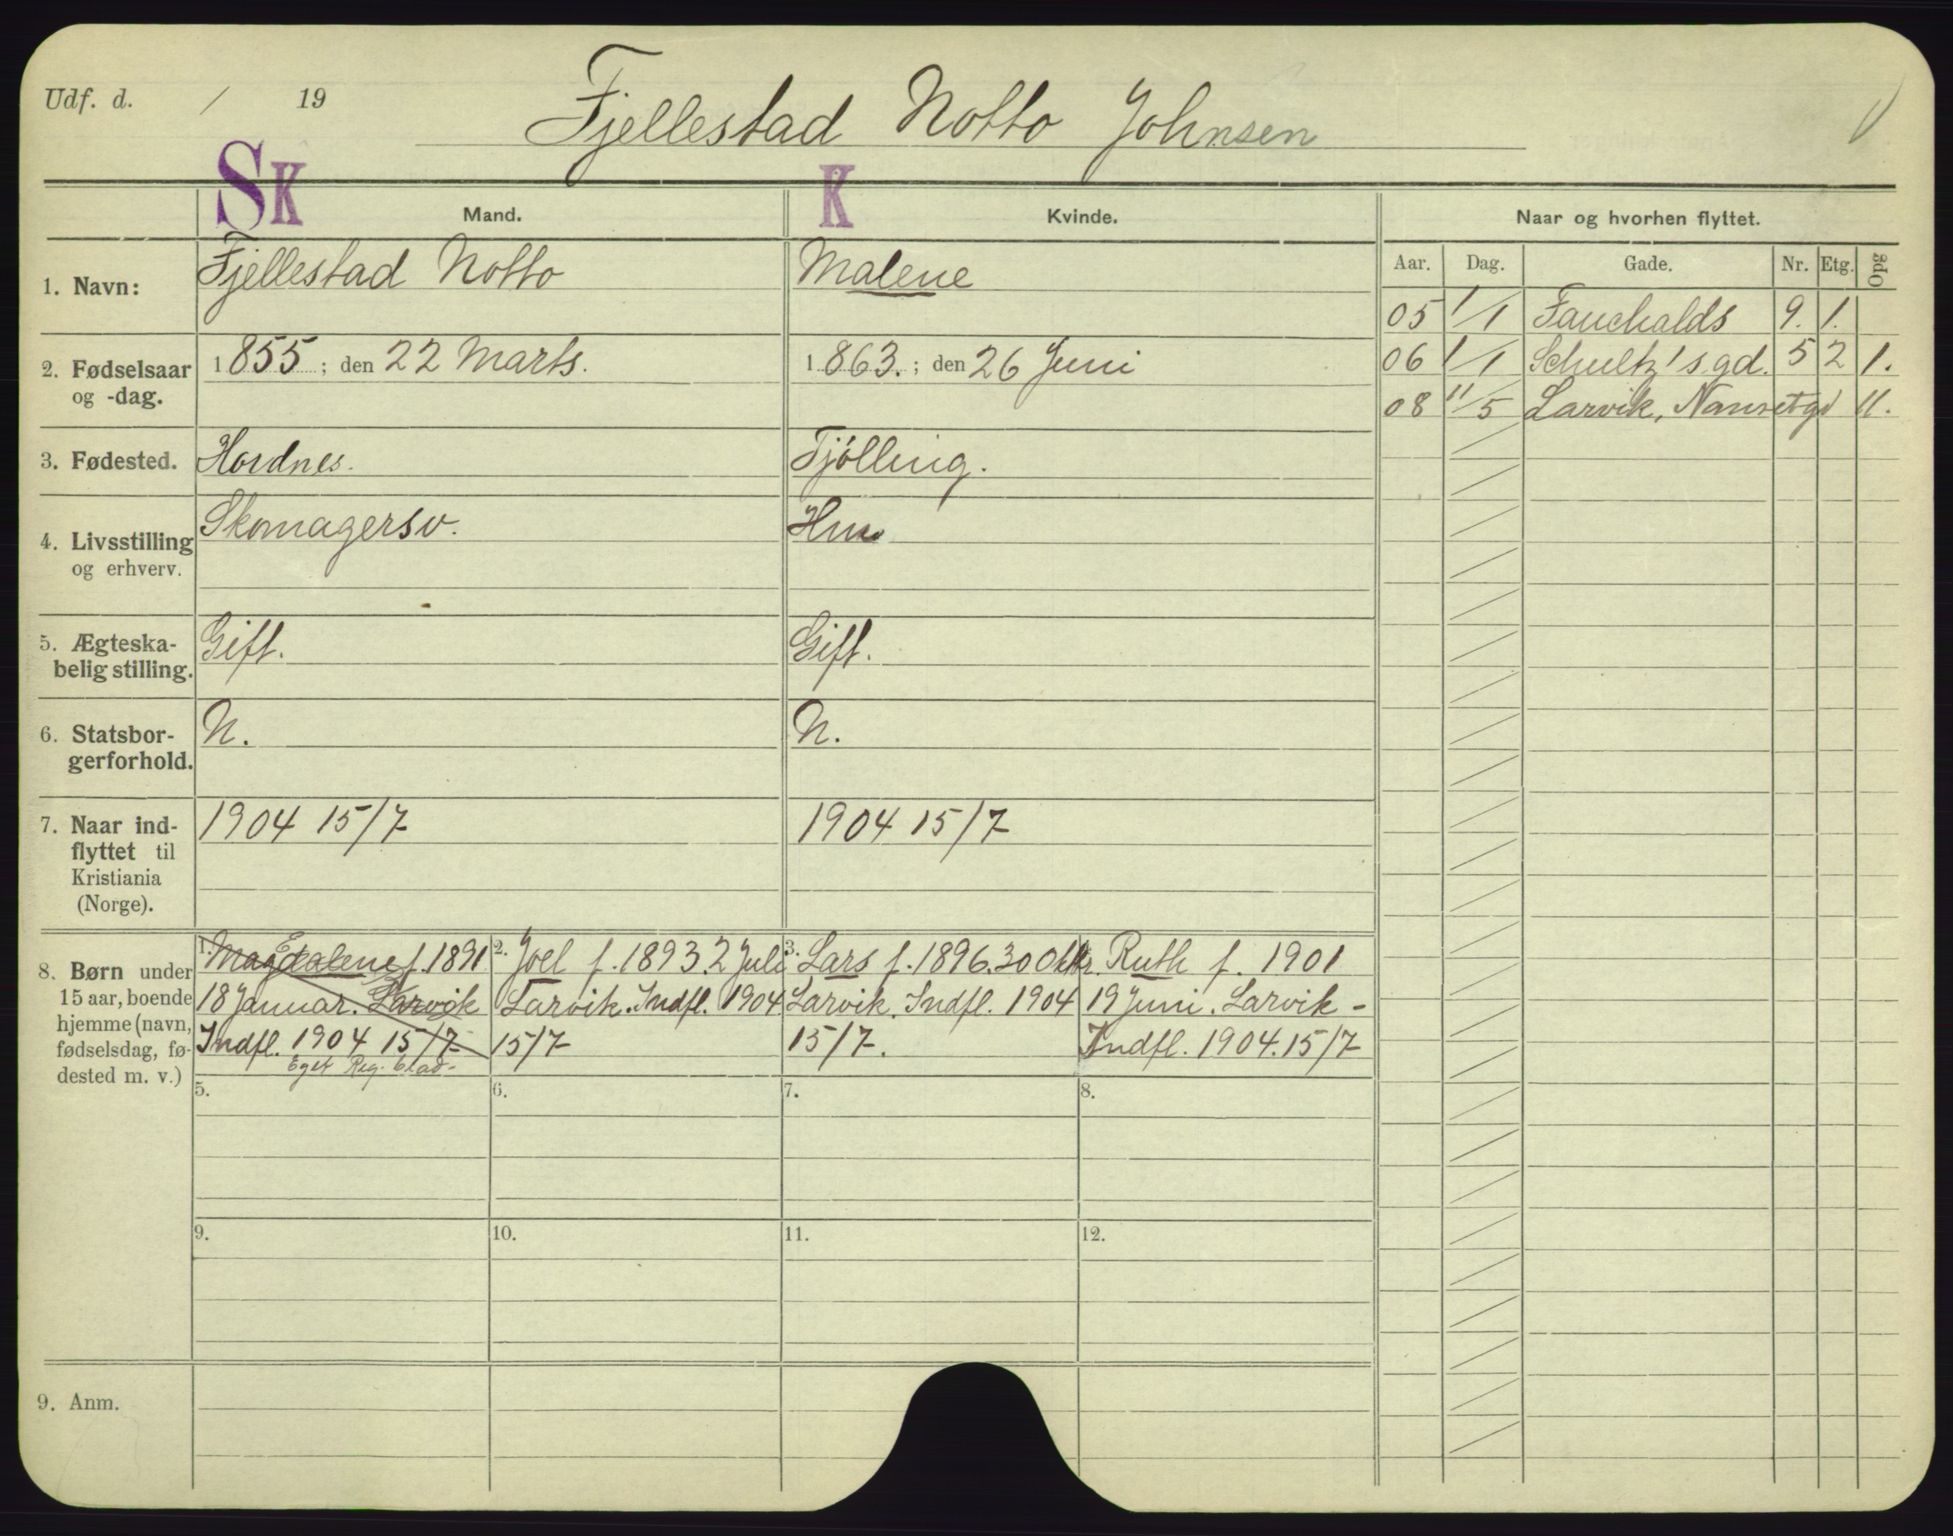 Udf. d. / 19
Fjellestad Notto Johnsen
SK K
Mand. Kvinde. Naar og hvorhen flyttet.
Aar. Dag. Gade. Nr. Etg. Opg
1. Navn: Fjellestad Notto Malene
05 1/1 Fauchalds 9. 1.
2. Fødselsaar og -dag. 1855; den 22 Marts. 1863.; den 26 Juni
06 1/1 Schultz's gd. 5 2 1.
08 11/5 Larvik, Nansetgd 11.
3. Fødested. Hordnes. Tjölling.
4. Livsstilling og erhverv. Skomagersv.
5. Ægteska-
belig stilling. Gift. Gift.
6. Statsbor-
gerforhold. N. N.
7. Naar ind-
flyttet til
Kristiania
(Norge). 1904 15/7 1904 15/7
8. Børn under
15 aar, boende
hjemme (navn,
fødselsdag, fø-
dested m. v.)
1. Magdalene f. 1891
18 Januar. Larvik
Indfl. 1904 15/7
Eget Reg. blad-
2. Joel f. 1893. 2 Juli
Larvik. Indfl. 1904
15/7
3. Lars f. 1896. 30 Oktr.
Larvik, Indfl. 1904
15/7.
Ruth f. 1901
19 Juni. Larvik -
Indfl. 1904. 15/7
5. 6. 7. 8.
9. 10. 11. 12.
9. Anm.